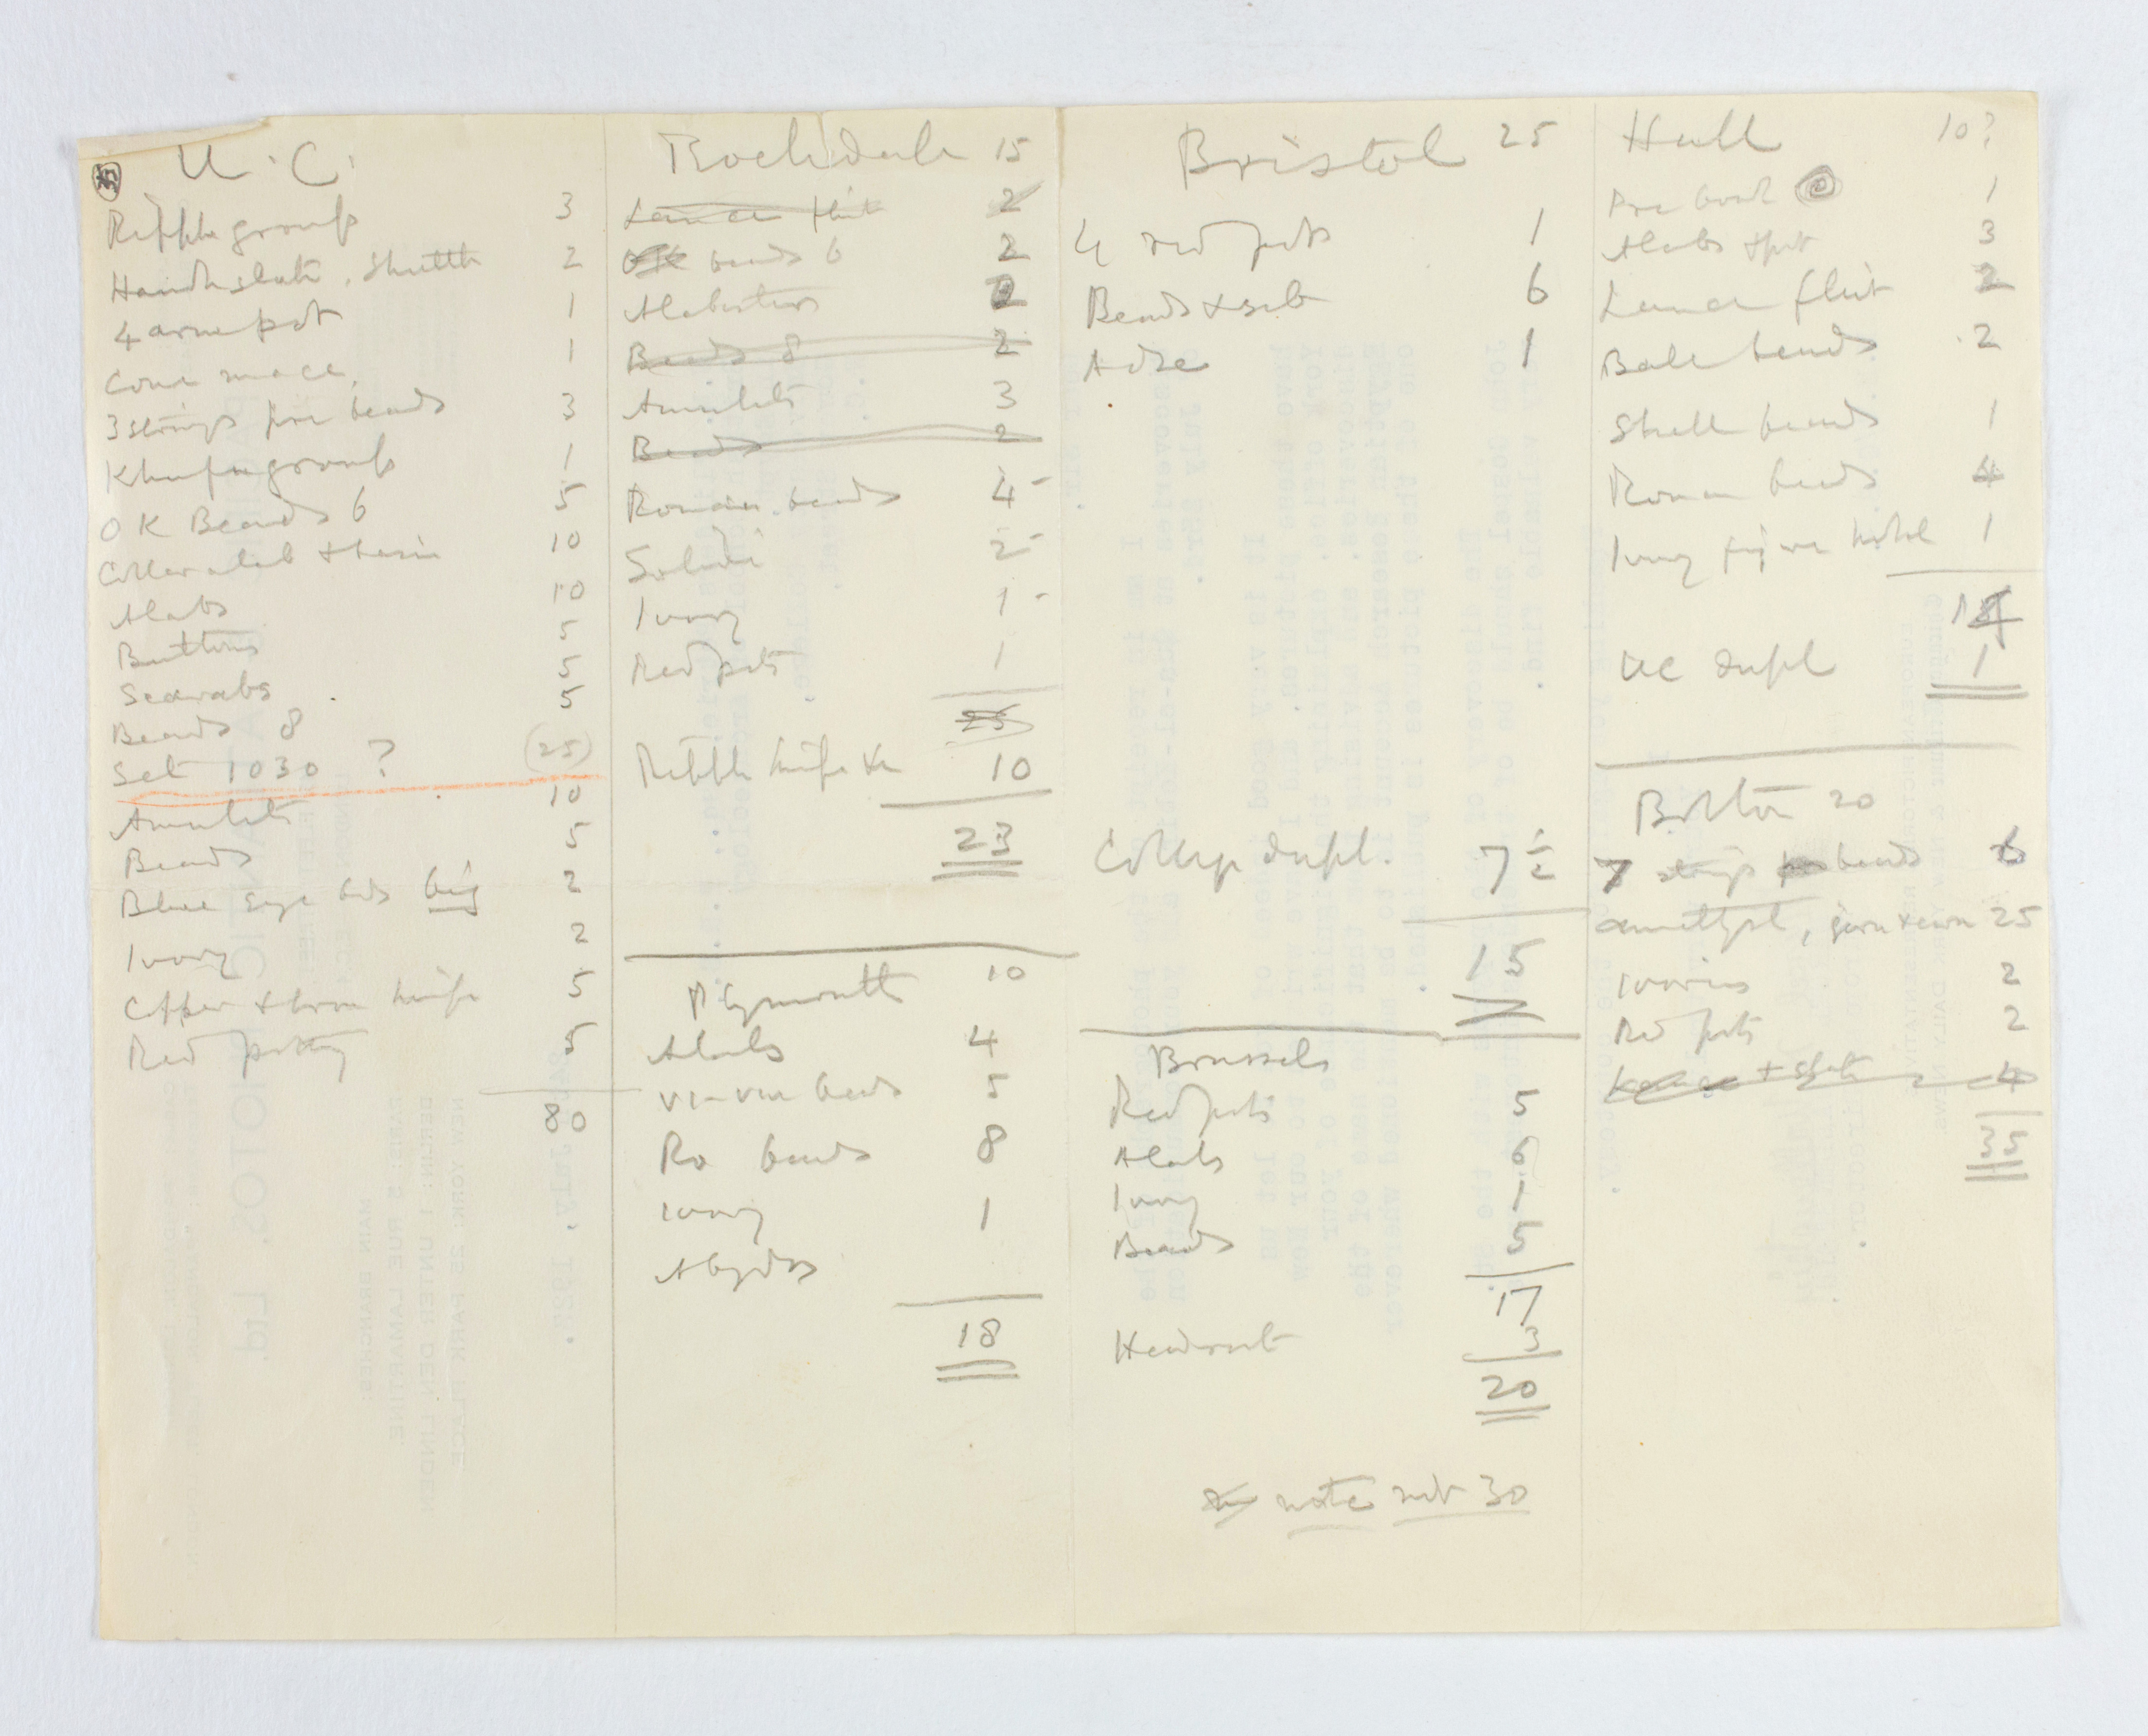 U.C.
Ripple group 3
Handle slate, Shuttle 2
4 arm pot 1
Cone mace, 1
3 strings pre beads 3
Khufu group 1
OK Beads 6 5
Collar alab + 10
Alabs 10
Buttons 5
Scarabs 5
Beads 8 5
Set 1030 ? (25)
Amulets 10
Beads 5
Blue eye bds big 2
Ivory 2
Copper + iron knife 5
Red potty 5
80
Rochdale 15
Lance flint 2
beads 6 2
Alabasters 2
Beads 8 2
Amulets 3
Beads 2
Roman beads 4 -
Solidi 2 -
Ivory 1 -
Red pots 1
25
Ripple knife &c 10
23
Plymouth 10
Alabs 4
VI-VIII beads 5
Ro beads 8
Ivory 1
Abydos
18
Bristol 25
4 red pots 1
Beads + seb 6
Adze 1
College dupl. 7
15
Brussels
Red pots 5
Alabs 6
Ivory 1
Beads 5
17
Headrest 3
20
note not 30
Hull 10?
Pre bowl 1
Alabs + pot 3
Lance flint 2
Ball beads 2
Shell beads 1
Roman beads 4
Ivory figure 1
14
UC dupl 1
Bolton 20
7 strings beads 6
amethyst, 25
Ivories 2
Red pots 2
+ slate 4
35